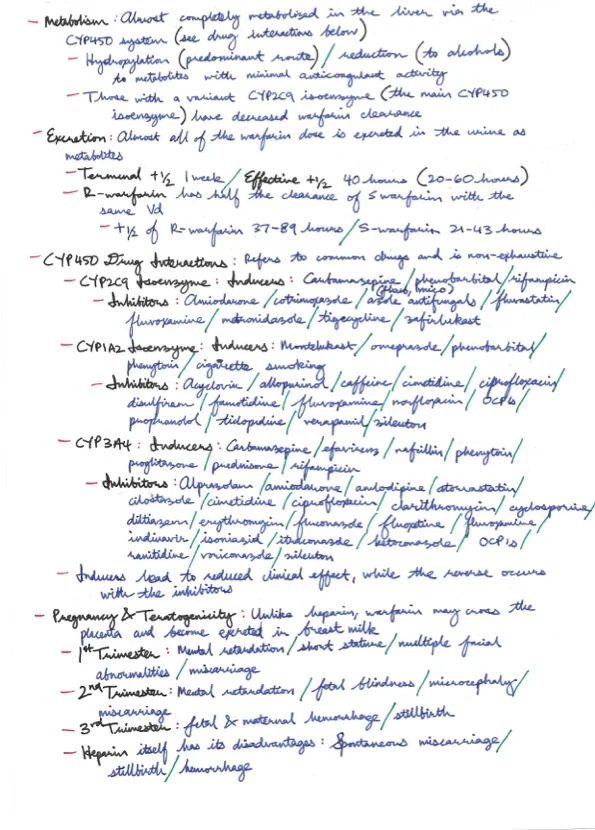 - Metabolism: Almost completely metabolised in the liver via the
CYP450 system (see drug interactions below)
- Hydroxylation (predominant route) / reduction (to alcohols)
to metabolites with minimal anticoagulant activity
- Those with a variant CYP2C9 isoenzyme (the main CYP450
isoenzyme) have decreased warfarin clearance
- Excretion: Almost all of the warfarin dose is excreted in the urine as
metabolites
- Terminal t1/2 1 week / Effective t1/2 40 hours (20-60 hours)
- R-warfarin has half the clearance of S warfarin with the
same Vd
- t1/2 of R-warfarin 37-89 hours / S-warfarin 21-43 hours
- CYP450 Drug Interactions: Refers to common drugs and is non-exhaustive
- CYP2C9 Isoenzyme: Inducers: Carbamazepine / phenobarbital / rifampicin
- Inhibitors: Amiodarone / cotrimoxazole / azole antifungals (fluco, mico) / fluvastatin /
fluvoxamine / metronidazole / tigecycline / zafirlukast
- CYP1A2 Isoenzyme: Inducers: Montelukast / omeprazole / phenobarbital /
phenytoin / cigarette smoking
- Inhibitors: Acyclovir / allopurinol / caffeine / cimetidine / ciprofloxacin /
disulfiram / famotidine / fluvoxamine / norfloxacin / OCPs /
propranolol / ticlopidine / verapamil / zileuton
- CYP3A4: Inducers: Carbamazepine / efavirenz / nafcillin / phenytoin /
pioglitazone / prednisone / rifampicin
- Inhibitors: Alprazolam / amiodarone / amlodipine / atorvastatin /
cilostazole / cimetidine / ciprofloxacin / clarithromycin / cyclosporine /
diltiazem / erythromycin / fluconazole / fluoxetine / fluvoxamine /
indinavir / isoniazid / itraconazole / ketoconazole / OCPs /
ranitidine / voriconazole / zileuton
- Inducers lead to reduced clinical effect, while the reverse occurs
with the inhibitors
- Pregnancy & Teratogenicity: Unlike heparin, warfarin may cross the
placenta and become excreted in breast milk
- 1st Trimester: Mental retardation / short stature / multiple facial
abnormalities / miscarriage
- 2nd Trimester: Mental retardation / fetal blindness / microcephaly /
miscarriage
- 3rd Trimester: fetal & maternal hemorrhage / stillbirth
- Heparin itself has its disadvantages: Spontaneous miscarriage /
stillbirth / hemorrhage